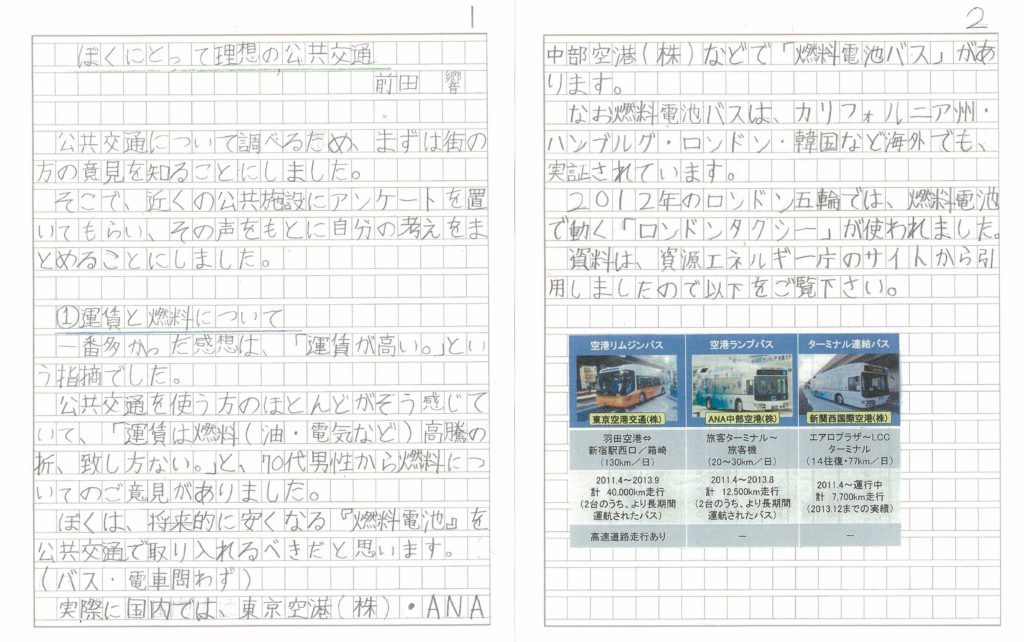 1
ぼくにとって理想の公共交通
前田 響
公共交通について調べるため、まずは街の
方の意見を知ることにしました。
そこで、近くの公共施設にアンケートを置
いてもらい、その声をもとに自分の考えをま
とめることにしました。
①運賃と燃料について
一番多かった感想は、「運賃が高い。」とい
う指摘でした。
公共交通を使う方のほとんどがそう感じて
いて、「運賃は燃料(油・電気など)高騰の
折、致し方ない。」と、70代男性から燃料につ
いてのご意見がありました。
ぼくは、将来的に安くなる『燃料電池』を
公共交通で取り入れるべきだと思います。
(バス・電車問わず)
実際に国内では、東京空港(株)・ANA
2
中部空港(株)などで「燃料電池バス」があ
ります。
なお燃料電池バスは、カリフォルニア州・
ハンブルグ・ロンドン・韓国など海外でも、
実証されています。
2012年のロンドン五輪では、燃料電池
で動く「ロンドンタクシー」が使われました。
資料は、資源エネルギー庁のサイトから引
用しましたので以下をご覧下さい。
空港リムジンバス 空港ランプバス ターミナル連結バス
東京空港交通(株) ANA中部空港(株) 新関西国際空港(株)
羽田空港⇔
新宿駅西口/箱崎
(130km/日)
旅客ターミナル~
旅客機
(20~30km/日)
エアロプラザ~LCC
ターミナル
(14往復・77km/日)
2011.4~2013.9
計 40,000km走行
(2台のうち、より長期間
運航されたバス)
2011.4~2013.8
計 12,500km走行
(2台のうち、より長期間
運航されたバス)
2011.4~運行中
計 7,700km走行
(2013.12までの実績)
高速道路走行あり － －